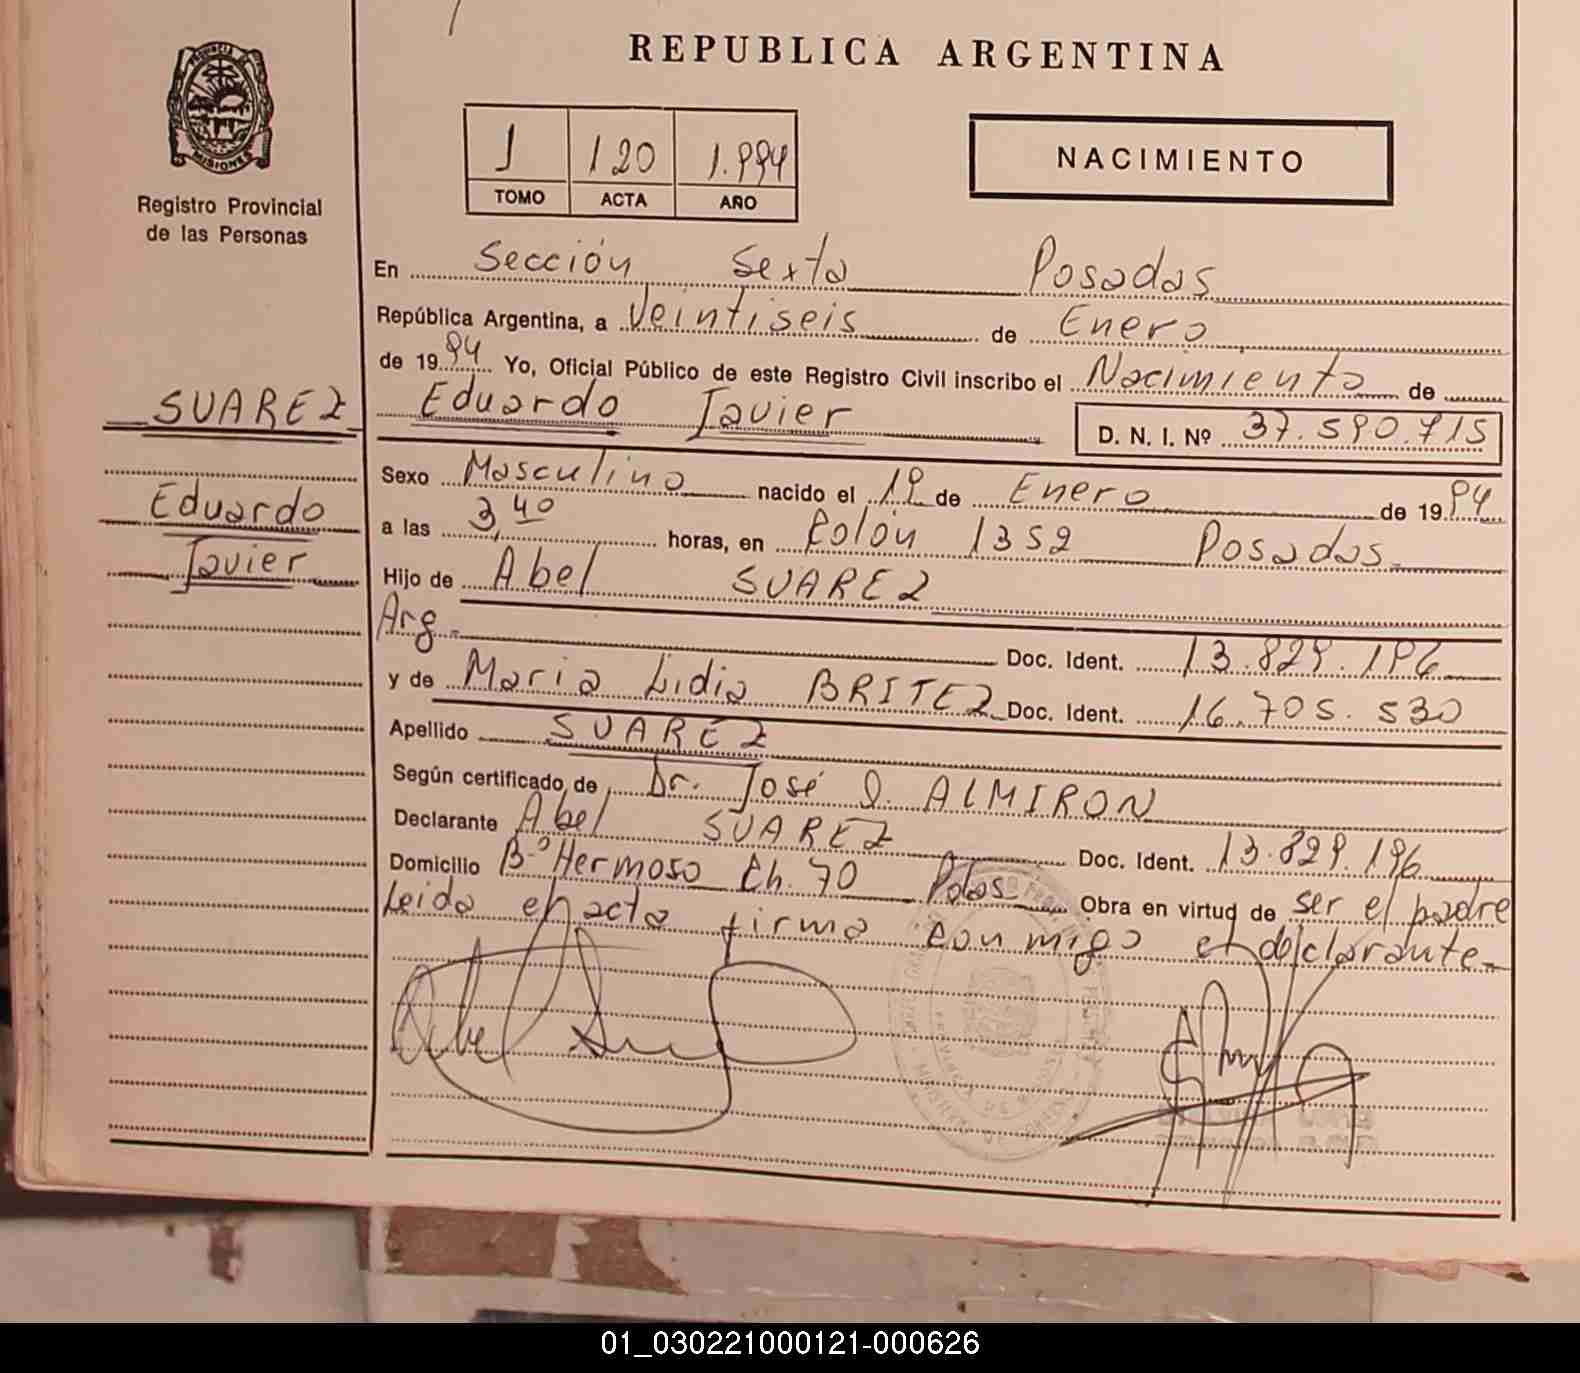 REPUBLICA ARGENTINA
PROVINCIA DE
MISIONES
Registro Provincial
de las Personas
1 120 1.994
TOMO ACTA AÑO
NACIMIENTO
En Sección Sexta Posadas
República Argentina, a Veintiseis de Enero
de 1994 Yo, Oficial Público de este Registro Civil inscribo el Nacimiento de
SUAREZ
Eduardo
Javier
Eduardo Javier D. N. I. Nº 37.590.715
Sexo Masculino nacido el 19 de Enero de 1994
a las 3,40 horas, en Colón 1352 Posadas.
Hijo de Abel SUAREZ
Arg. Doc. Ident. 13.829.196
y de Maria Lidia BRITEZ Doc. Ident. 16.705.530
Apellido SUAREZ
Según certificado de Dr. José ALMIRON
Declarante Abel SUAREZ Doc. Ident. 13.829.196
Domicilio Bº Hermoso Ch. 70 Pdas Obra en virtud de ser el padre
Leida el acta firma conmigo el declarante-
01_030221000121-000626